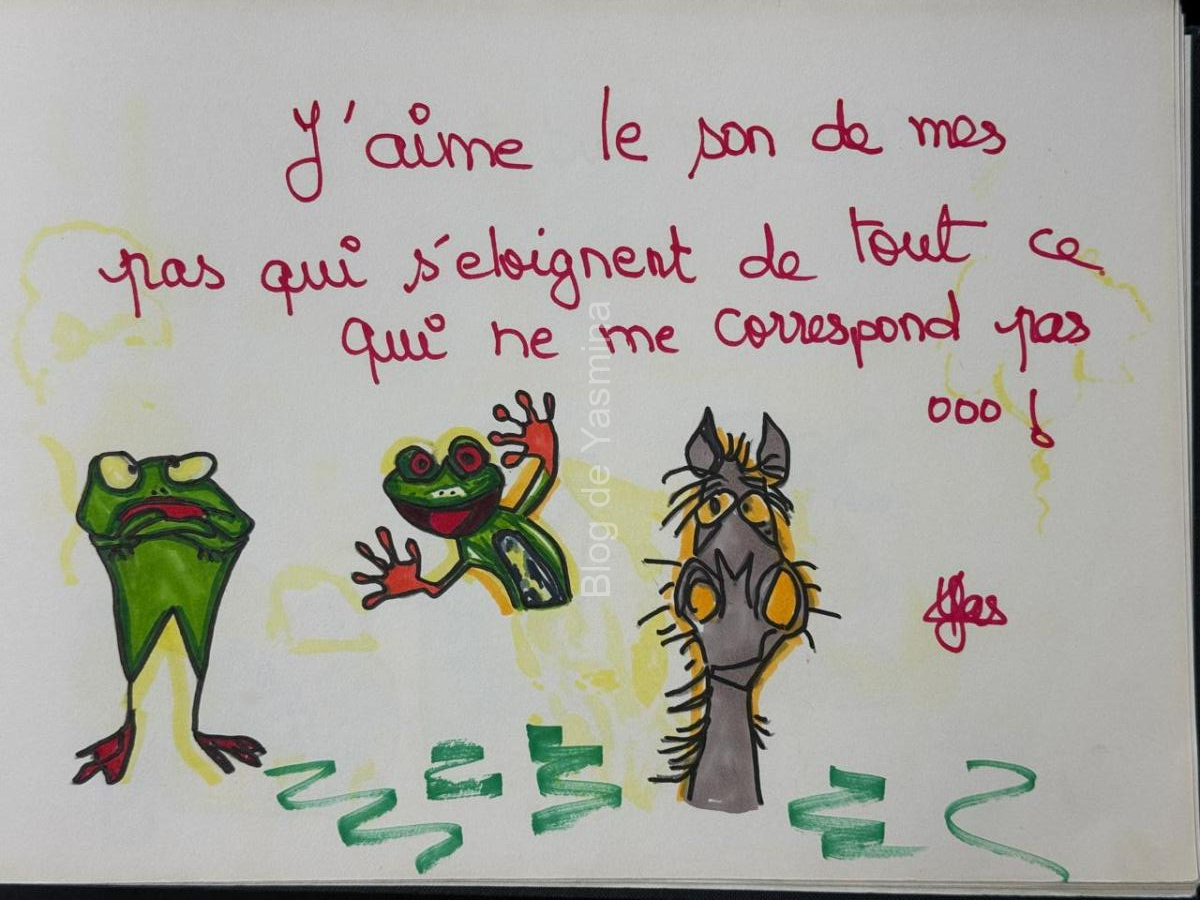 J'aime le son de mes
pas qui s'eloignent de tout ce
qui ne me correspond pas
ooo !
Yas
Blog de Yasmina